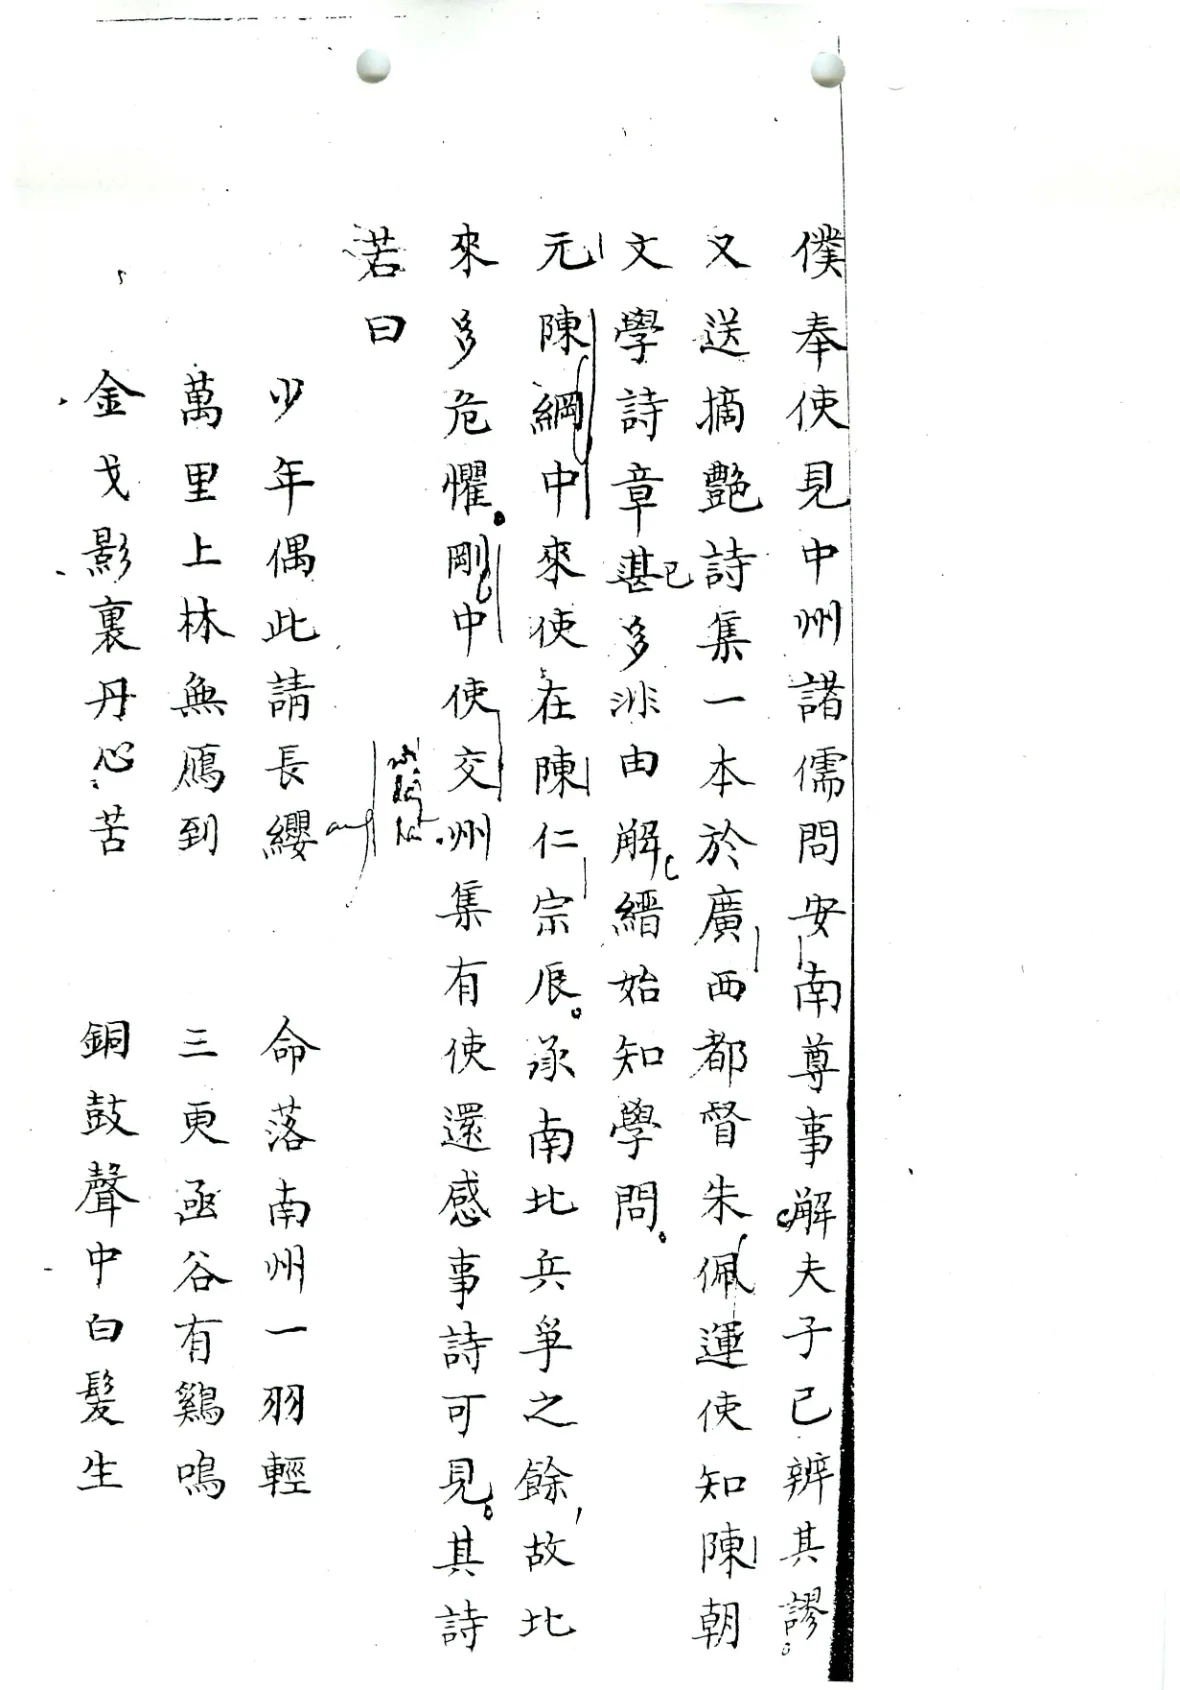 僕奉使見中州諸儒問安南尊事解夫子已辨其謬。
又送摘艷詩集一本於廣西都督朱佩運使知陳朝
文學詩章甚已多非由解縉始知學問。
元陳綱中來使在陳仁宗辰。承南北兵爭之餘，故北
來多危懼。剛中使交州集有使還感事詩可見。其詩
若曰
少年偶此請長纓 命落南州一羽輕
萬里上林無鴈到 三更函谷有鷄鳴
金戈影裏丹心苦 銅鼓聲中白髮生